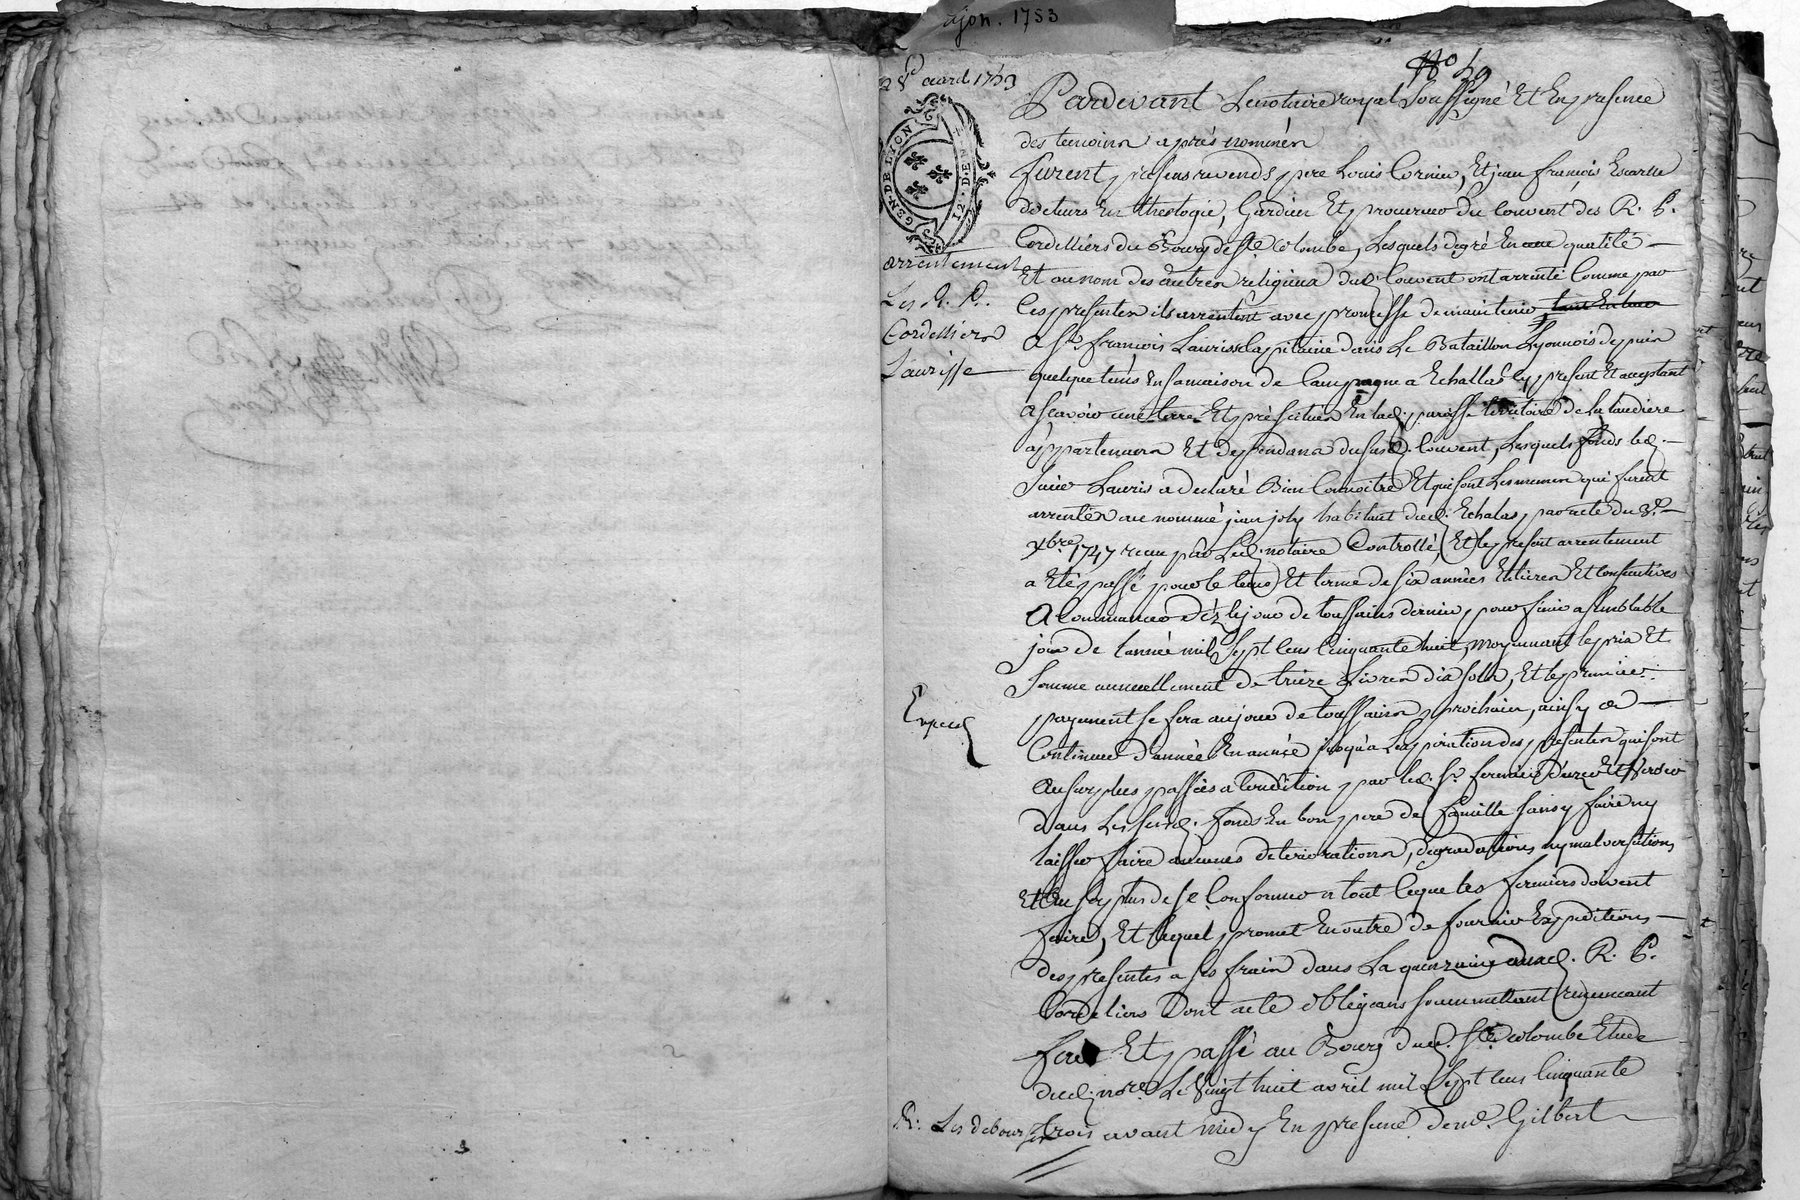 ajon. 1753
28 avril 1753
No 59
GEN. DE LYON
12. DEN
arrentement
Les R. P.
Cordelliers
Laurisse
Expedié
Pardevant Le notaire royal Soussigné Et En presence
des temoins après nommés
furent presens reverends pere Louis Cornier, Et jean françois
docteurs En theologie, Gardien Et procureur du Couvent des R. P.
Cordelliers du Bourg de Ste Colombe, Lesquels degré En qualité
Et au nom des autres religieux dud. Couvent ont arrenté Comme par
Ces presentes ils arrentent avec promesse de maintenir
a Sr. françois Laurisse Capitaine dans Le Bataillon Lyonnois depuis
quelque tems En sa maison de Campagne a Echallas Cy present Et acceptant
a scavoir une terre Et pré scitués En lad. paroisse territoire de la
appartenans Et dependans du susd. Couvent, Lesquels fonds led.
Sieur Lauris a declaré Bien Connoitre Et qui sont Les mêmes qui furent
arrentés au nommé jean joly habitant dud. Echalas, par acte du 8e.
xbre. 1747 recu par Led. notaire Controllé, Et le present arrentement
a Eté passé pour le tems Et terme de six années Entieres Et Consecutives
A Commancer dèz le jour de toussaints dernier, pour finir a semblable
jour de l'année mil Sept Cens Cinquante huit, moyennant le prix Et
Somme annuellement de treize Livres dix sols, Et le premier
payement se fera au jour de toussaints prochain, ainsy a
Continuer d'année En année jusqu'a L'expiration des presentes qui sont
Au surplus passées a Condition par led. Sr. fermier d'uzer Et
dans Les susd. fonds En bon pere de famille sans y faire ny
laisser faire aucunes deteriorations, degradations ny malversations
Et Au surplus de se Conformer a tout Ce que les fermiers doivent
faire, Et lequel promet En outre de fournir Expeditions
des presentes a ses frais dans La quinzaine auxd. R. P.
Cordeliers Dont acte obligeans soummettant renoncant
fait Et passé au Bourg dud. Ste. Colombe Etude
dud. nore. Le Vingt huit avril mil Sept Cens Cinquante
trois avant midy En presence de me. Gilbert
R: Les debourses